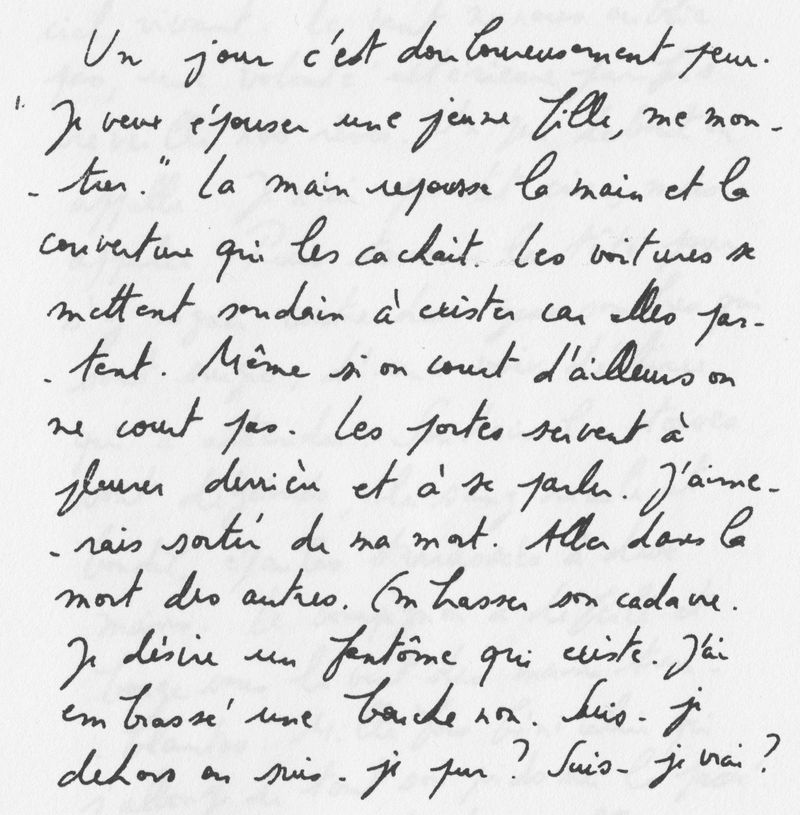 Un jour c'est douloureusement peur.
"Je veux épouser une jeune fille, me mon-
- trer." La main repousse la main et la
couverture qui les cachait. Les voitures se
mettent soudain à exister car elles par-
- tent. Même si on court d'ailleurs on
ne court pas. Les portes servent à
pleurer derrière et à se parler. J'aime-
- rais sortir de ma mort. Aller dans la
mort des autres. Embrasser son cadavre.
Je désire un fantôme qui existe. J'ai
embrassé une bouche non. Suis-je
dehors ou suis-je pur ? Suis-je vrai ?